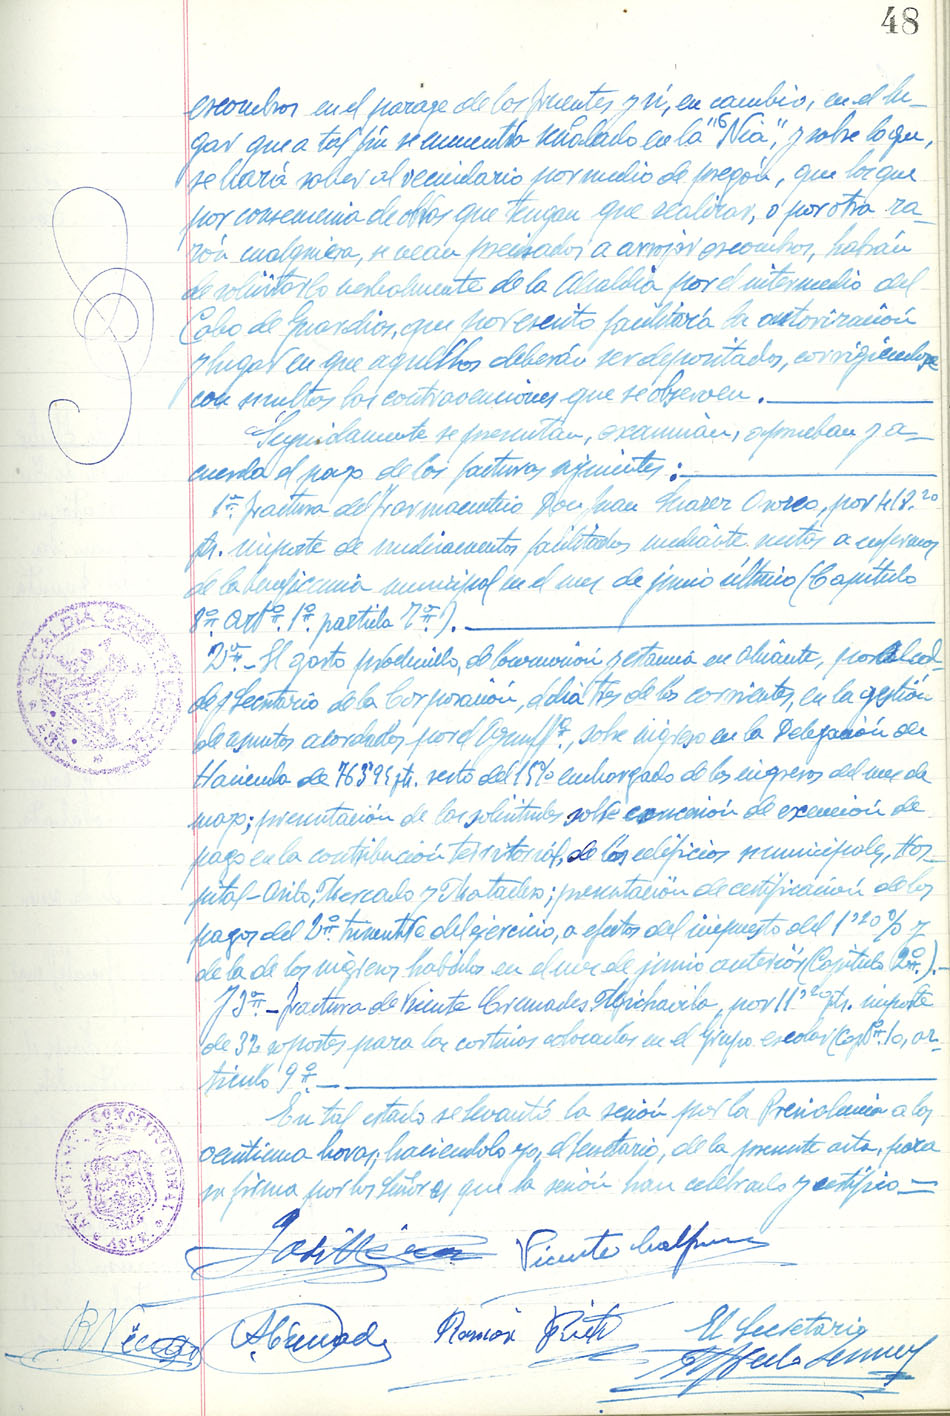 48
escombros en el parage de los fuentes y sí, en cambio, en el lu-
gar que a tal fin se encuentra señalado en la "Nia", y sobre lo que,
se hará saber al vecindario por medio de pregón, que los que
por consecuencia de obras que tengan que realizar, o por otra ra-
zón cualquiera, se vean precisados a arrojar escombros, habrán
de solicitarlo verbalmente de la Alcaldía por el intermedio del
Cabo de Guardias, que por escrito facilitará la autorización
y lugar en que aquellos deberán ser depositados, corrigiendose
con multas las contravenciones que se observen.
Seguidamente se presentan, examinan, aprueban y a-
cuerda el pago de las facturas siguientes:
1ª. factura del Farmaceutico Don Juan Orozco, por 418'20
pts. importe de medicamentos facilitados mediante recetas a enfermos
de la beneficencia municipal en el mes de junio último (Capítulo
8º. artº. 1º. partida 7ª.).
2ª.- El gasto producido, de locomoción y estancia en Alicante, por Alcal-
de y Secretario de la Corporación, el dia tres de los corrientes, en la gestión
de asuntos acordados por el Ayunttº., sobre ingreso en la Delegación de
Hacienda de pts. resto del 15% embargado de los ingresos del mes de
mayo; presentación de las solicitudes sobre concesión de exención de
pago en la contribución territorial, de los edificios municipales, Hos-
pital-Asilo, Mercado y Matadero; presentación de certificación de los
pagos del 2º. trimestre del ejercicio, a efectos del impuesto del 1'20% y
de la de los ingresos habidos en el mes de junio anterior (Capítulo 2º.).-
Y 3ª.- factura de Vicente Cremades Michavila, por 11'20 pts. importe
de 32 soportes para las cortinas colocadas en el Grupo escolar (Capº. 10, ar-
tículo 9º.-
En tal estado se levantó la sesión por la Presidencia a las
veintiuna horas; haciendolo yo, el Secretario, de la presente acta, para
su firma por los Señores que la sesión han celebrado y certifico-
Vicente
Ramón
El Secretario
ALCALDIA CONSTITUCIONAL
AYUNTAMIENTO CONSTITUCIONAL * ASPE *